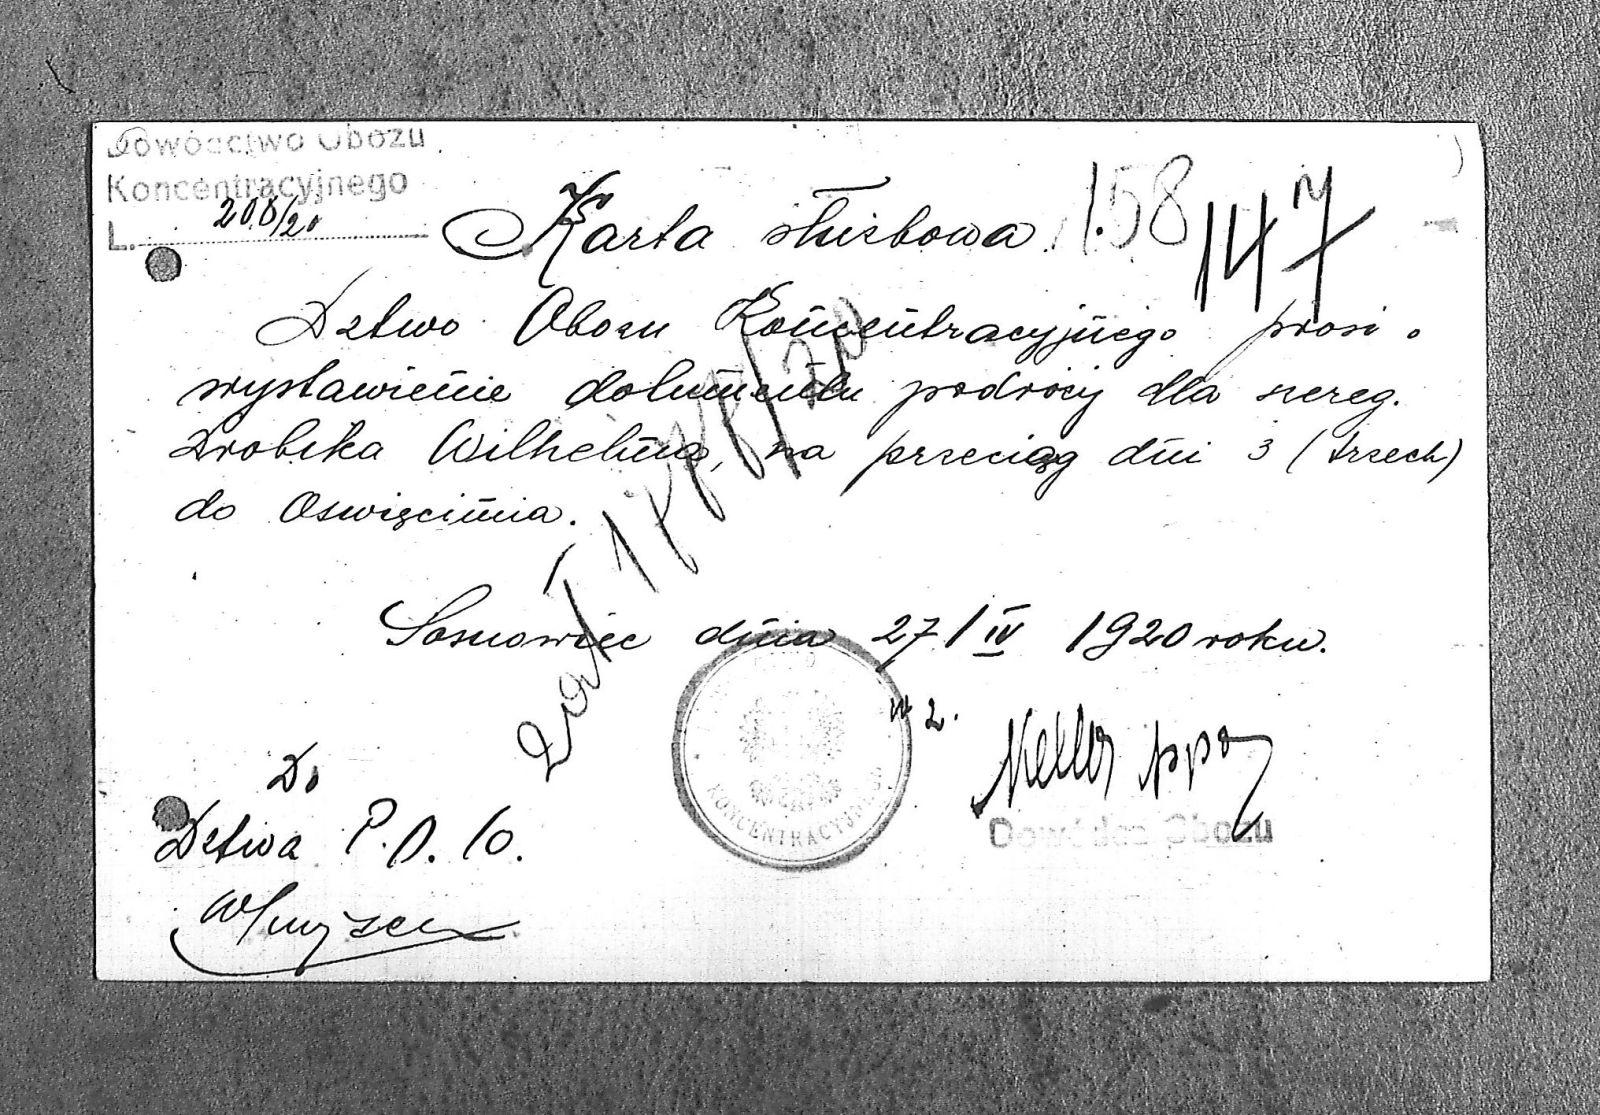 Dowództwo Obozu
Koncentracyjnego
L. 208/20
Karta służbowa.
158
147
Dztwo Obozu Koncentracyjnego prosi o
wystawienie dokumentu podróży dla szereg.
Wilhelma, na przeciąg dni 3 (trzech)
do Oswięcimia.
Sosnowiec dnia 27/IV 1920 roku.
w z.
Keller ppor
Dowódca Obozu
KONCENTRACYJNEGO
Do
Dztwa P.O.
w miejscu